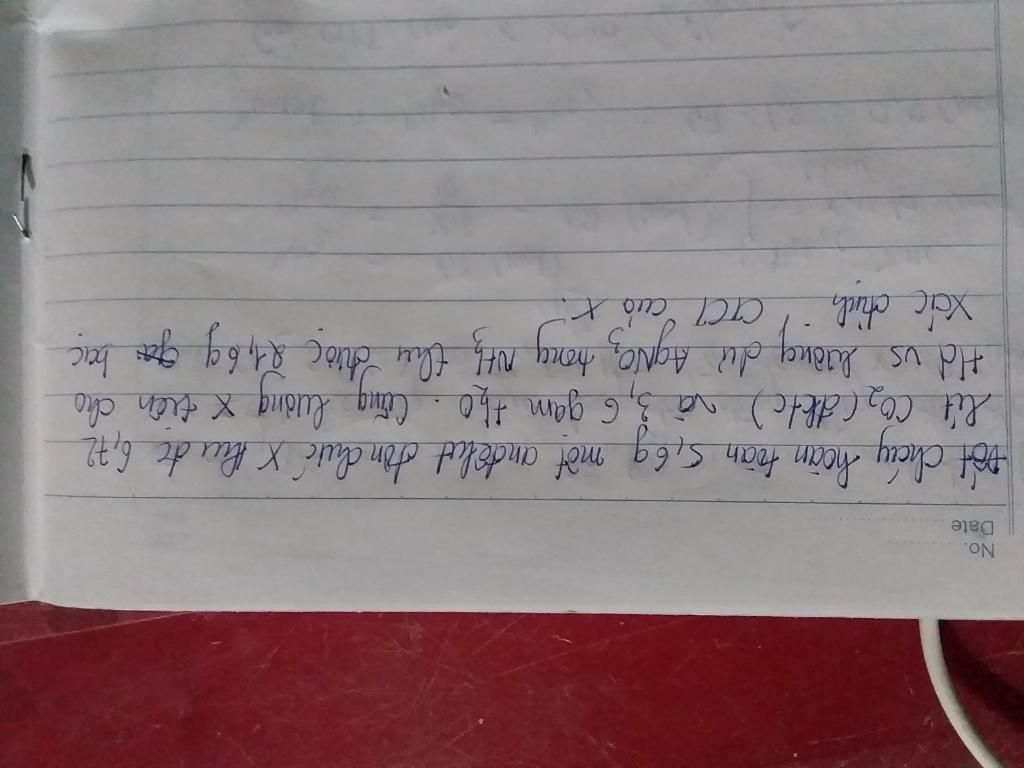 No.
Date
Đốt cháy hoàn toàn 5,6g một anđehit đơn chức X thu đc 6,72
lít CO2 (đktc) và 3,6 gam H2O. Cũng lượng X trên cho
td vs lượng dư AgNO3 trong NH3 thu được 21,6g bạc
Xác định CTCT của X.